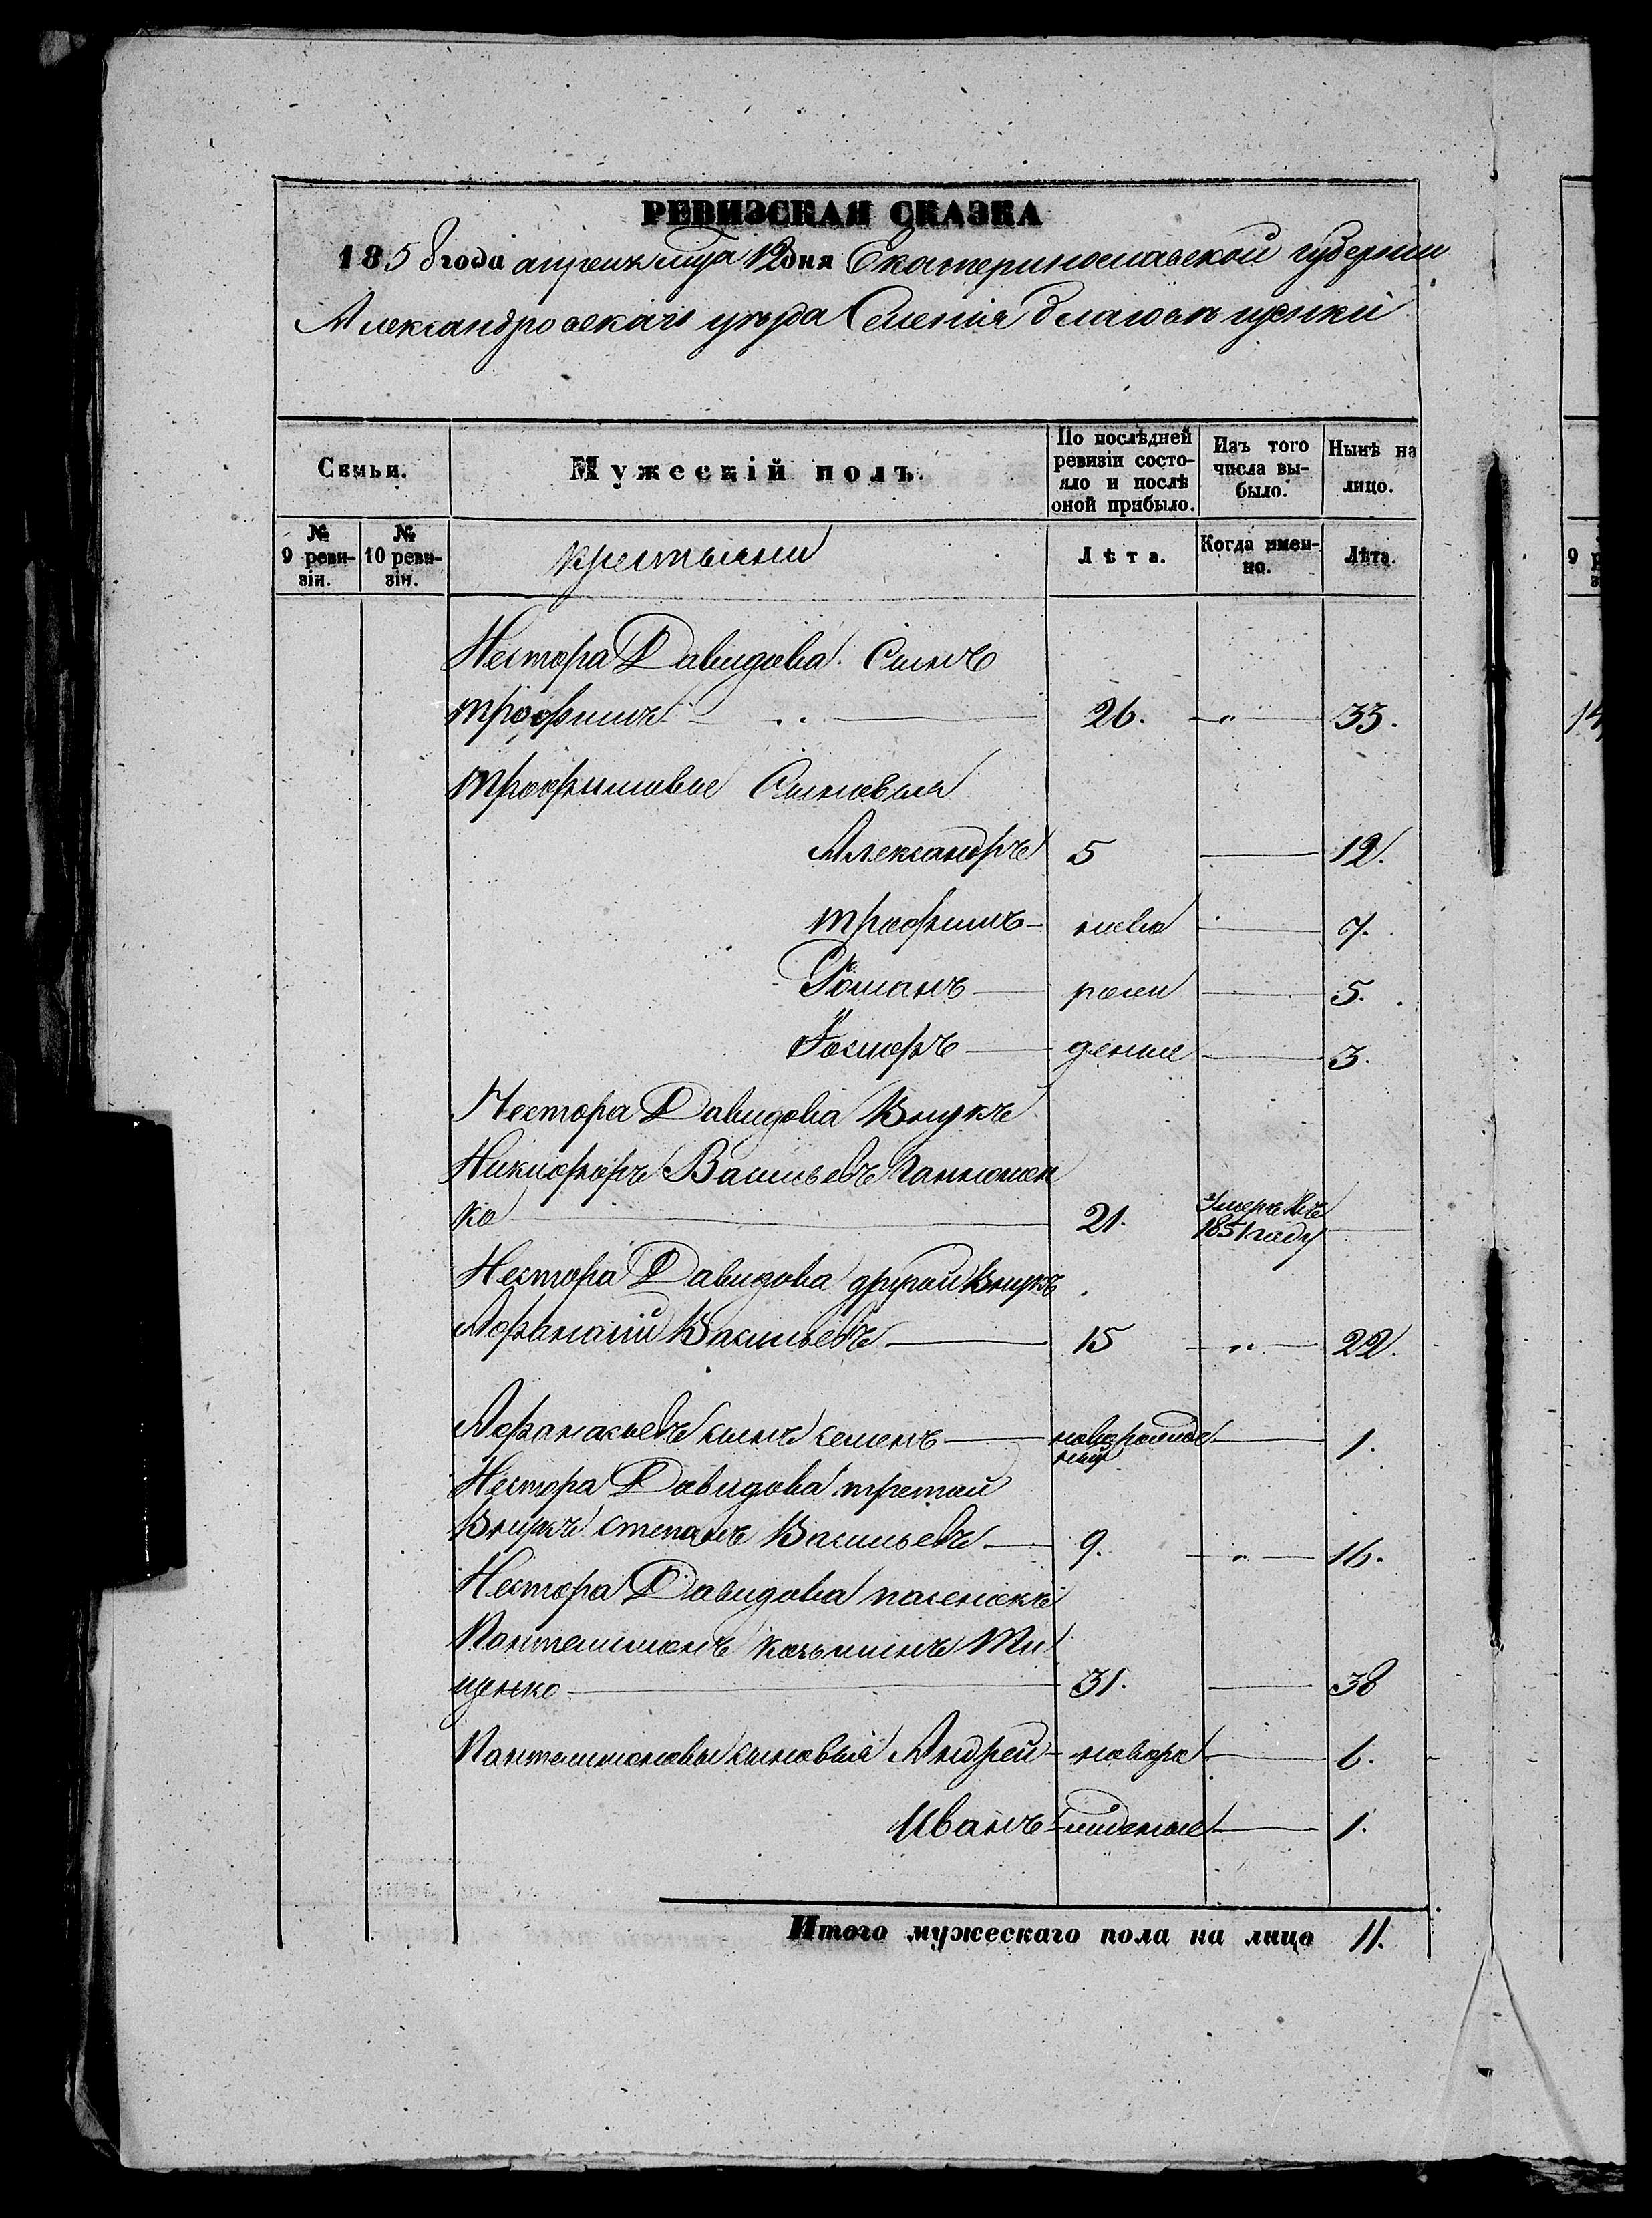 РЕВИЗСКАЯ СКАЗКА
1858 года апреля мца 12 дня Екатеринославской губернии
Александровскаго уезда Селения Благовещенки
Семьи.
Мужескій полъ.
По послѣдней ревизіи состояло и послѣ оной прибыло.
Изъ того числа выбыло.
Нынѣ на лицо.
№ 9 ревизіи.
№ 10 ревизіи.
крестьяни
Лѣта.
Когда именно.
Лѣта.
9
Нестора Давидова Сынъ
трофимъ 26. 33.
14
трофимовые Сыновья
Александръ 5 12.
трофимъ ново 7.
Романъ рожи 5.
деные 3.
Нестора Давидова Внукъ
Никифоръ Васильевъ
ко 21. Умеръ Въ 1851 году
Нестора Давидова другой Внукъ
Афанасий Васильевъ 15 22.
Афанасьевъ сынъ семенъ новорожденый 1.
Нестора Давидова третой
Внукъ степанъ Васильевъ 9. 16.
Нестора Давидова пасенокъ
Пантелимонъ козьминъ Ми
щенко 31. 38
Пантелимоновы сыновья Андрей новоро 6.
Иванъ жиденые 1.
Итого мужескаго пола на лицо 11.